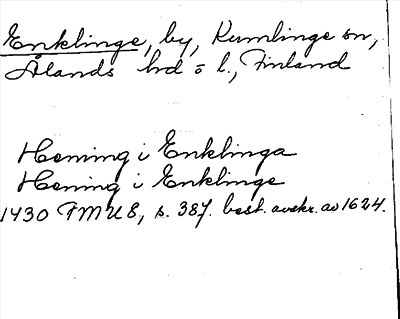 Enklinge, by, Kumlinge sn,
Ålands hd o l., Finland
Heming i Enklinga
Heming i Enklinge
1430 FMU 8, s. 387. best. avskr. av 1624.